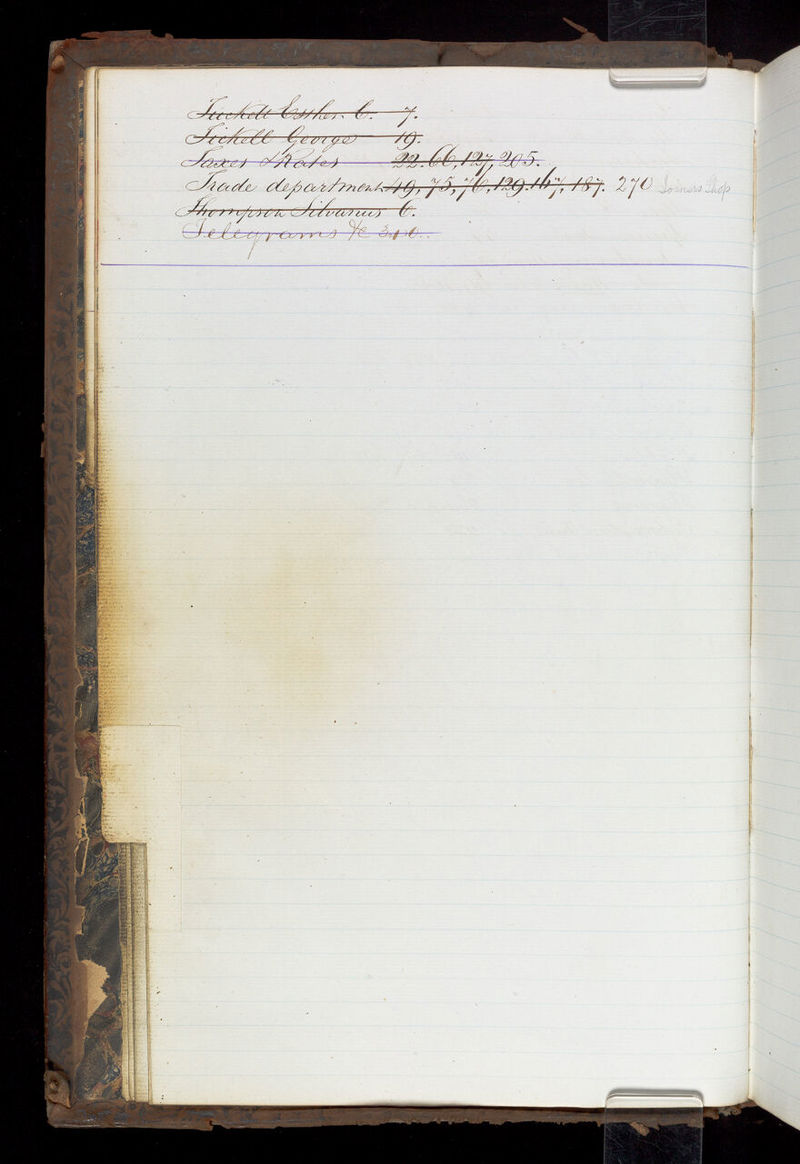 Tuckett Esther. C. 7.
Tickell George 19.
Taxes & Rates 22. 66, 127, 205.
Trade department 49, 75, 76, 129. 167, 187. 270 Joiners Shop
Thompson Silvanus 6.
Telegrams &c 310.